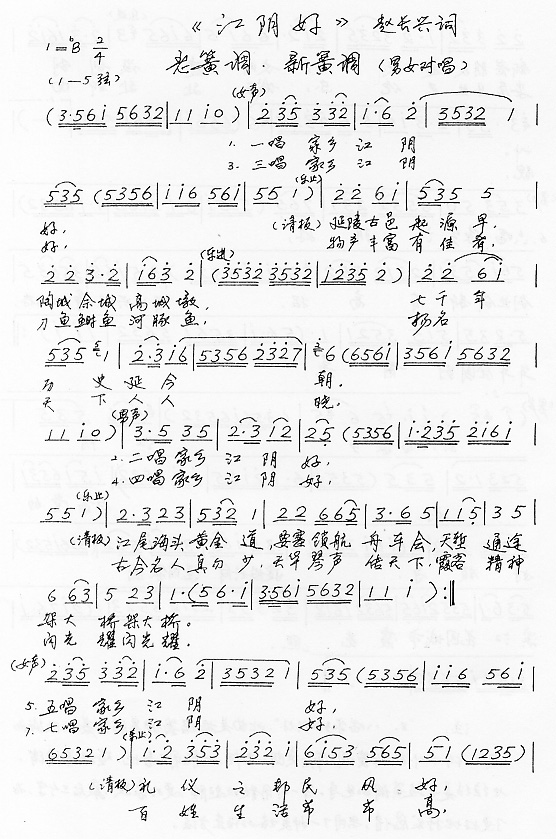 《江阴好》 赵长兴词
1=ᵇB 2/4
(1—5弦)
老簧调·新簧调(男女对唱)
(女声)
(3·56i 5632|11 i0)|235 332|i·6 2|3532 1|
1.一唱 家乡 江 阴
3.三唱 家乡 江 阴
(乐止)
535 (5356|ii6 56i|55 1)|22 6i|535 5|
好, (清板)延陵古邑 起源早,
好, 物产丰富 有佳肴,
(乐进)
22 3·2|i63 2|(3532 3532|i235 2)|22 6i|
陶城佘城 高城墩, 七千年
刀鱼鲥鱼 河豚鱼, 扬名
535 1|2·3i6|5356 2327|6 (656i|356i 5632|
历 史延今 朝,
天 下人人 晓,
(男声)
11 i0)|3·5 35|2·3 i2|25 (5356|i·235 2i6i|
2.二唱 家乡 江 阴 好,
4.四唱 家乡 江 阴 好,
(乐止)
551)|2·323|532 1|22 665|3·65|115|35|
(清板)江尾海头 黄金 道,要塞领航 舟车会,天堑 通途
古今名人真勿少,天华琴声 传天下,霞客 精神
6 63|5 23|1·(56·i|356i 5632|11 i):‖
架大 桥架大桥。
闪光 耀闪光耀。
(女声)
235 332|i·6 2|3532 1|535 (5356|ii6 56i|
5.五唱 家乡 江 阴 好,
7.七唱 家乡 江 阴 好,
(乐止)
6532 1)|i·2 353|232 i|6i53 565|5i (1235)|
(清板)礼 仪 之 邦 民 风 好,
百 姓 生 活 节 节 高,